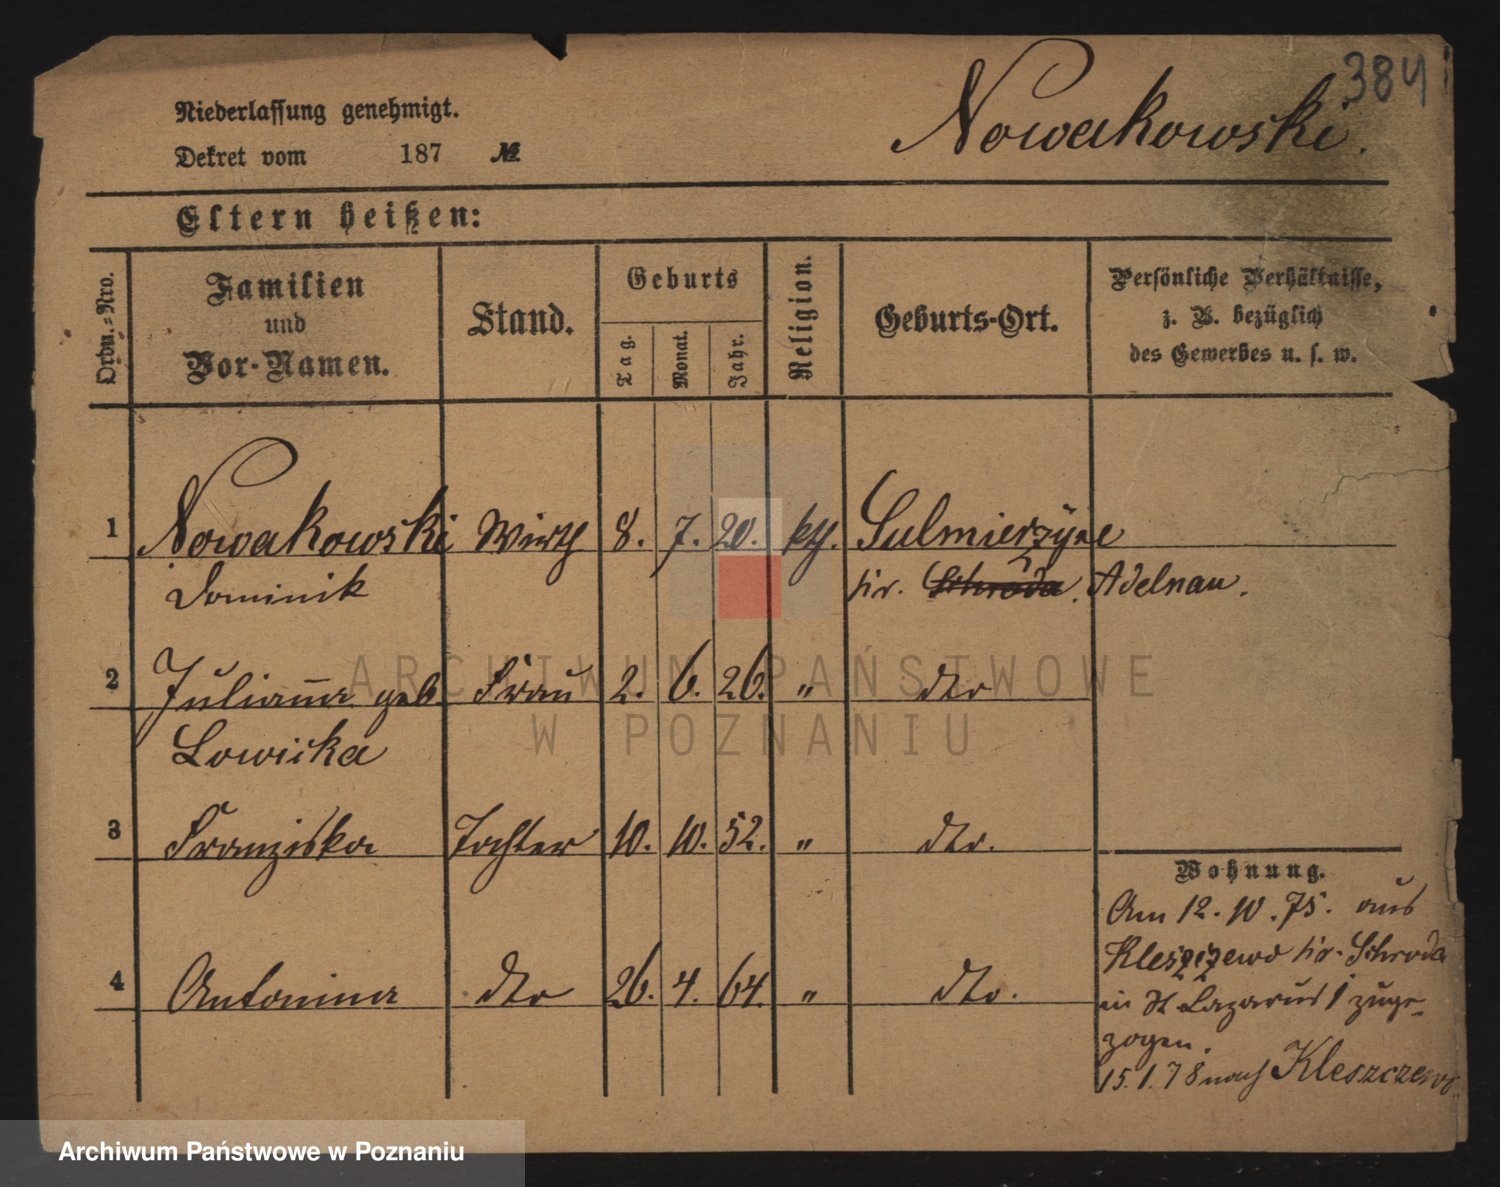 384
Niederlassung genehmigt.
Nowakowski.
Dekret vom 187 №
Eltern heißen:
Ordn.-Nro.
Familien und Vor-Namen.
Stand.
Geburts
Tag.
Monat.
Jahr.
Religion.
Geburts-Ort.
Persönliche Verhältnisse,
z. B. bezüglich
des Gewerbes u. s. w.
1 Nowakowski Wirth 8. 7. 20. kth. Sulmierzyne
Dominik kr. Schroda. Adelnau.
2 Julianna geb. Frau 2. 6. 26. " dto
Lowicka
3 Franziska Tochter 10. 10. 52. " dto.
4 Antonina dto 26. 4. 64. " dto.
Wohnung.
Am 12. 10. 75. aus
Kleszczewo kr. Schroda
in St Lazarus 1 zuge-
zogen.
15.1.78 nach Kleszczewo.
ARCHIWUM PAŃSTWOWE
W POZNANIU
Archiwum Państwowe w Poznaniu